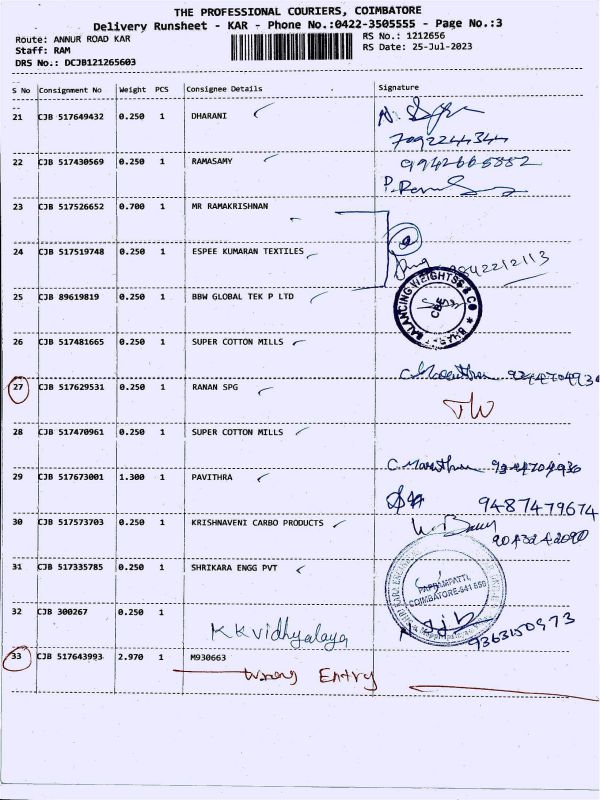 THE PROFESSIONAL COURIERS, COIMBATORE
Delivery Runsheet - KAR - Phone No.:0422-3505555 - Page No.:3
Route: ANNUR ROAD KAR
RS No.: 1212656
Staff: RAM
RS Date: 25-Jul-2023
DRS No.: DCJB121265603
S No Consignment No Weight PCS Consignee Details Signature
21 CJB 517649432 0.250 1 DHARANI
7092244344
22 CJB 517430569 0.250 1 RAMASAMY 9942665882
23 CJB 517526652 0.700 1 MR RAMAKRISHNAN
24 CJB 517519748 0.250 1 ESPEE KUMARAN TEXTILES 9842212113
25 CJB 89619819 0.250 1 BBW GLOBAL TEK P LTD
BALANCING WEIGHTS & CO
26 CJB 517481665 0.250 1 SUPER COTTON MILLS
27 CJB 517629531 0.250 1 RANAN SPG
TW
28 CJB 517470961 0.250 1 SUPER COTTON MILLS
29 CJB 517673001 1.300 1 PAVITHRA
9487479674
30 CJB 517573703 0.250 1 KRISHNAVENI CARBO PRODUCTS
31 CJB 517335785 0.250 1 SHRIKARA ENGG PVT
PAPPAMPATTI,
COIMBATORE-641
32 CJB 300267 0.250 1
KKvidhyalaya
9363150973
33 CJB 517643993 2.970 1 M930663
Wrong Entry